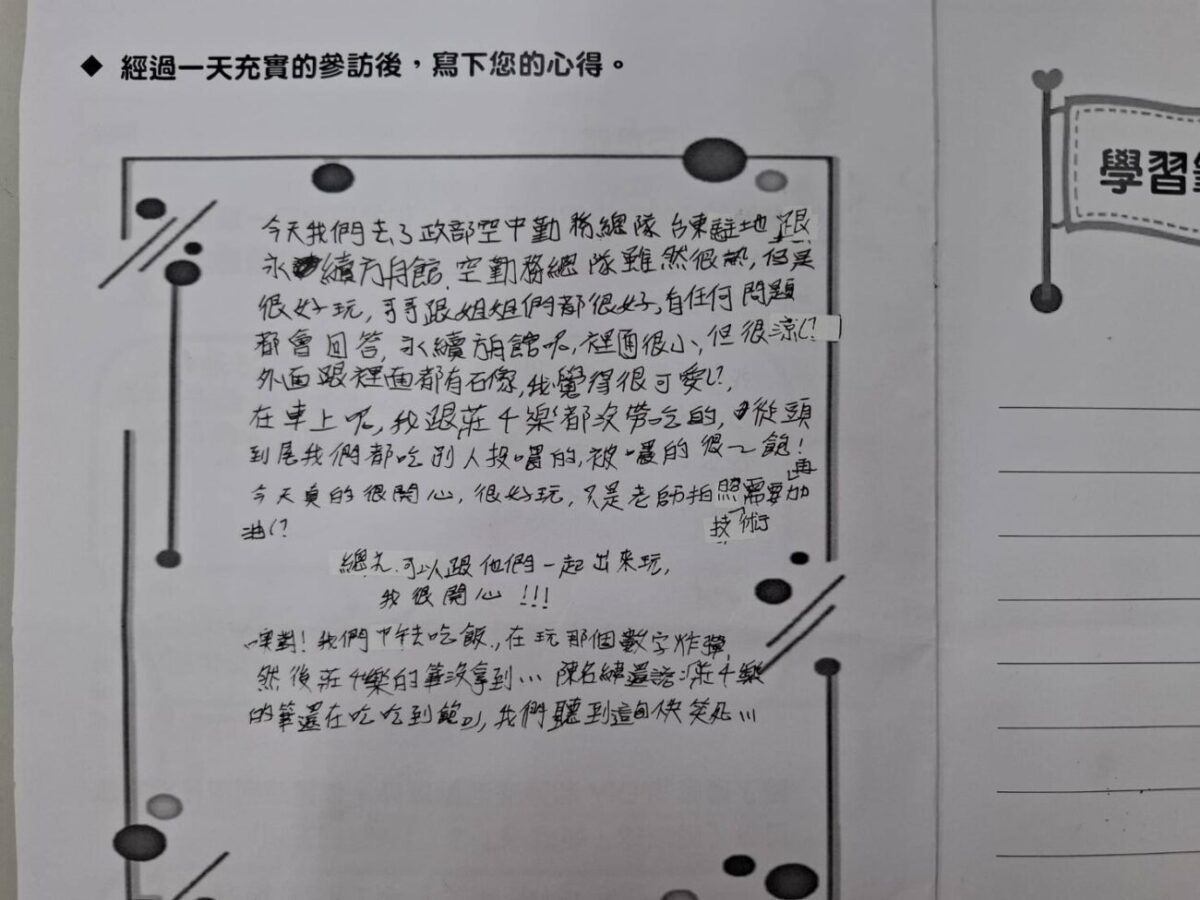 ◆ 經過一天充實的參訪後，寫下您的心得。
學習
今天我們去了政部空中勤務總隊台東駐地跟
永續方舟館. 空勤務總隊雖然很熱, 但是
很好玩, 哥哥跟姐姐們都很好, 有任何問題
都會回答, 永續方舟館呢, 裡面很小, 但很涼(?
外面跟裡面都有石像, 我覺得很可愛(?,
在車上呢, 我跟莊千樂都沒帶吃的, 從頭
到尾我們都吃別人投喂的, 被喂的很～飽!
今天真的很開心, 很好玩, 只是老師拍照技術需要再加
油(?
總之可以跟他們一起出來玩,
我很開心 !!!
噢對! 我們中午去吃飯, 在玩那個數字炸彈,
然後莊千樂的筆沒拿到... 陳名緯還說 : 莊千樂
的筆還在吃吃到飽」, 我們聽到這句快笑死...